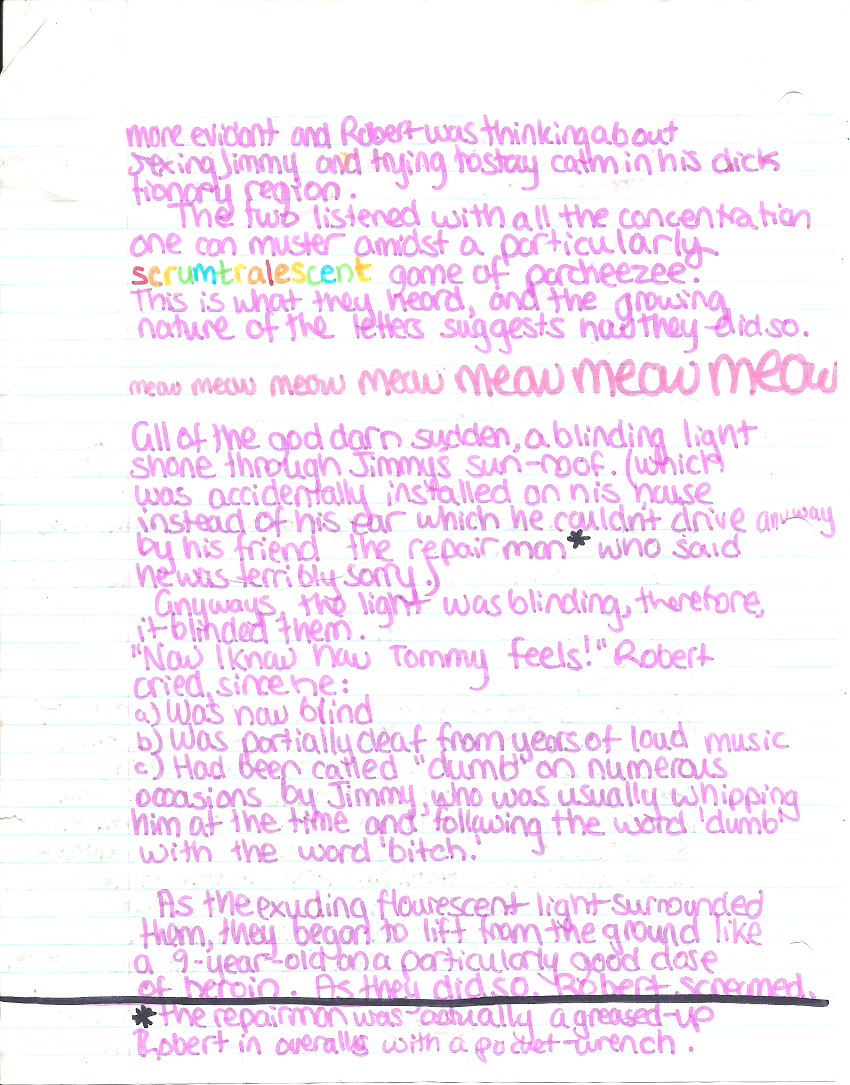 more evidant and Robert was thinking about
sexing Jimmy and trying to stay calm in his dick
tionary region.
The two listened with all the concentration
one can muster amidst a particularly
scrumtralescent game of parcheezee.
This is what they heard, and the growing
nature of the letters suggests how they did so.
meow meow meow meow meow meow meow
All of the god darn sudden, a blinding light
shone through Jimmy's sun-roof. (which
was accidentally installed on his house
instead of his car which he couldn't drive anyway
by his friend the repairman* who said
he was terribly sorry.)
Anyways, the light was blinding, therefore,
it blinded them.
"Now I know how Tommy feels!" Robert
cried, since he:
a) Was now blind
b) Was partially deaf from years of loud music
c) Had been called "dumb" on numerous
occasions by Jimmy, who was usually whipping
him at the time and following the word 'dumb'
with the word 'bitch.'
As the exuding flourescent light surrounded
them, they began to lift from the ground like
a 9-year-old on a particularly good dose
of heroin. As they did so, Robert screamed,
*the repairman was actually a greased-up
Robert in overalls with a pocket-wrench.